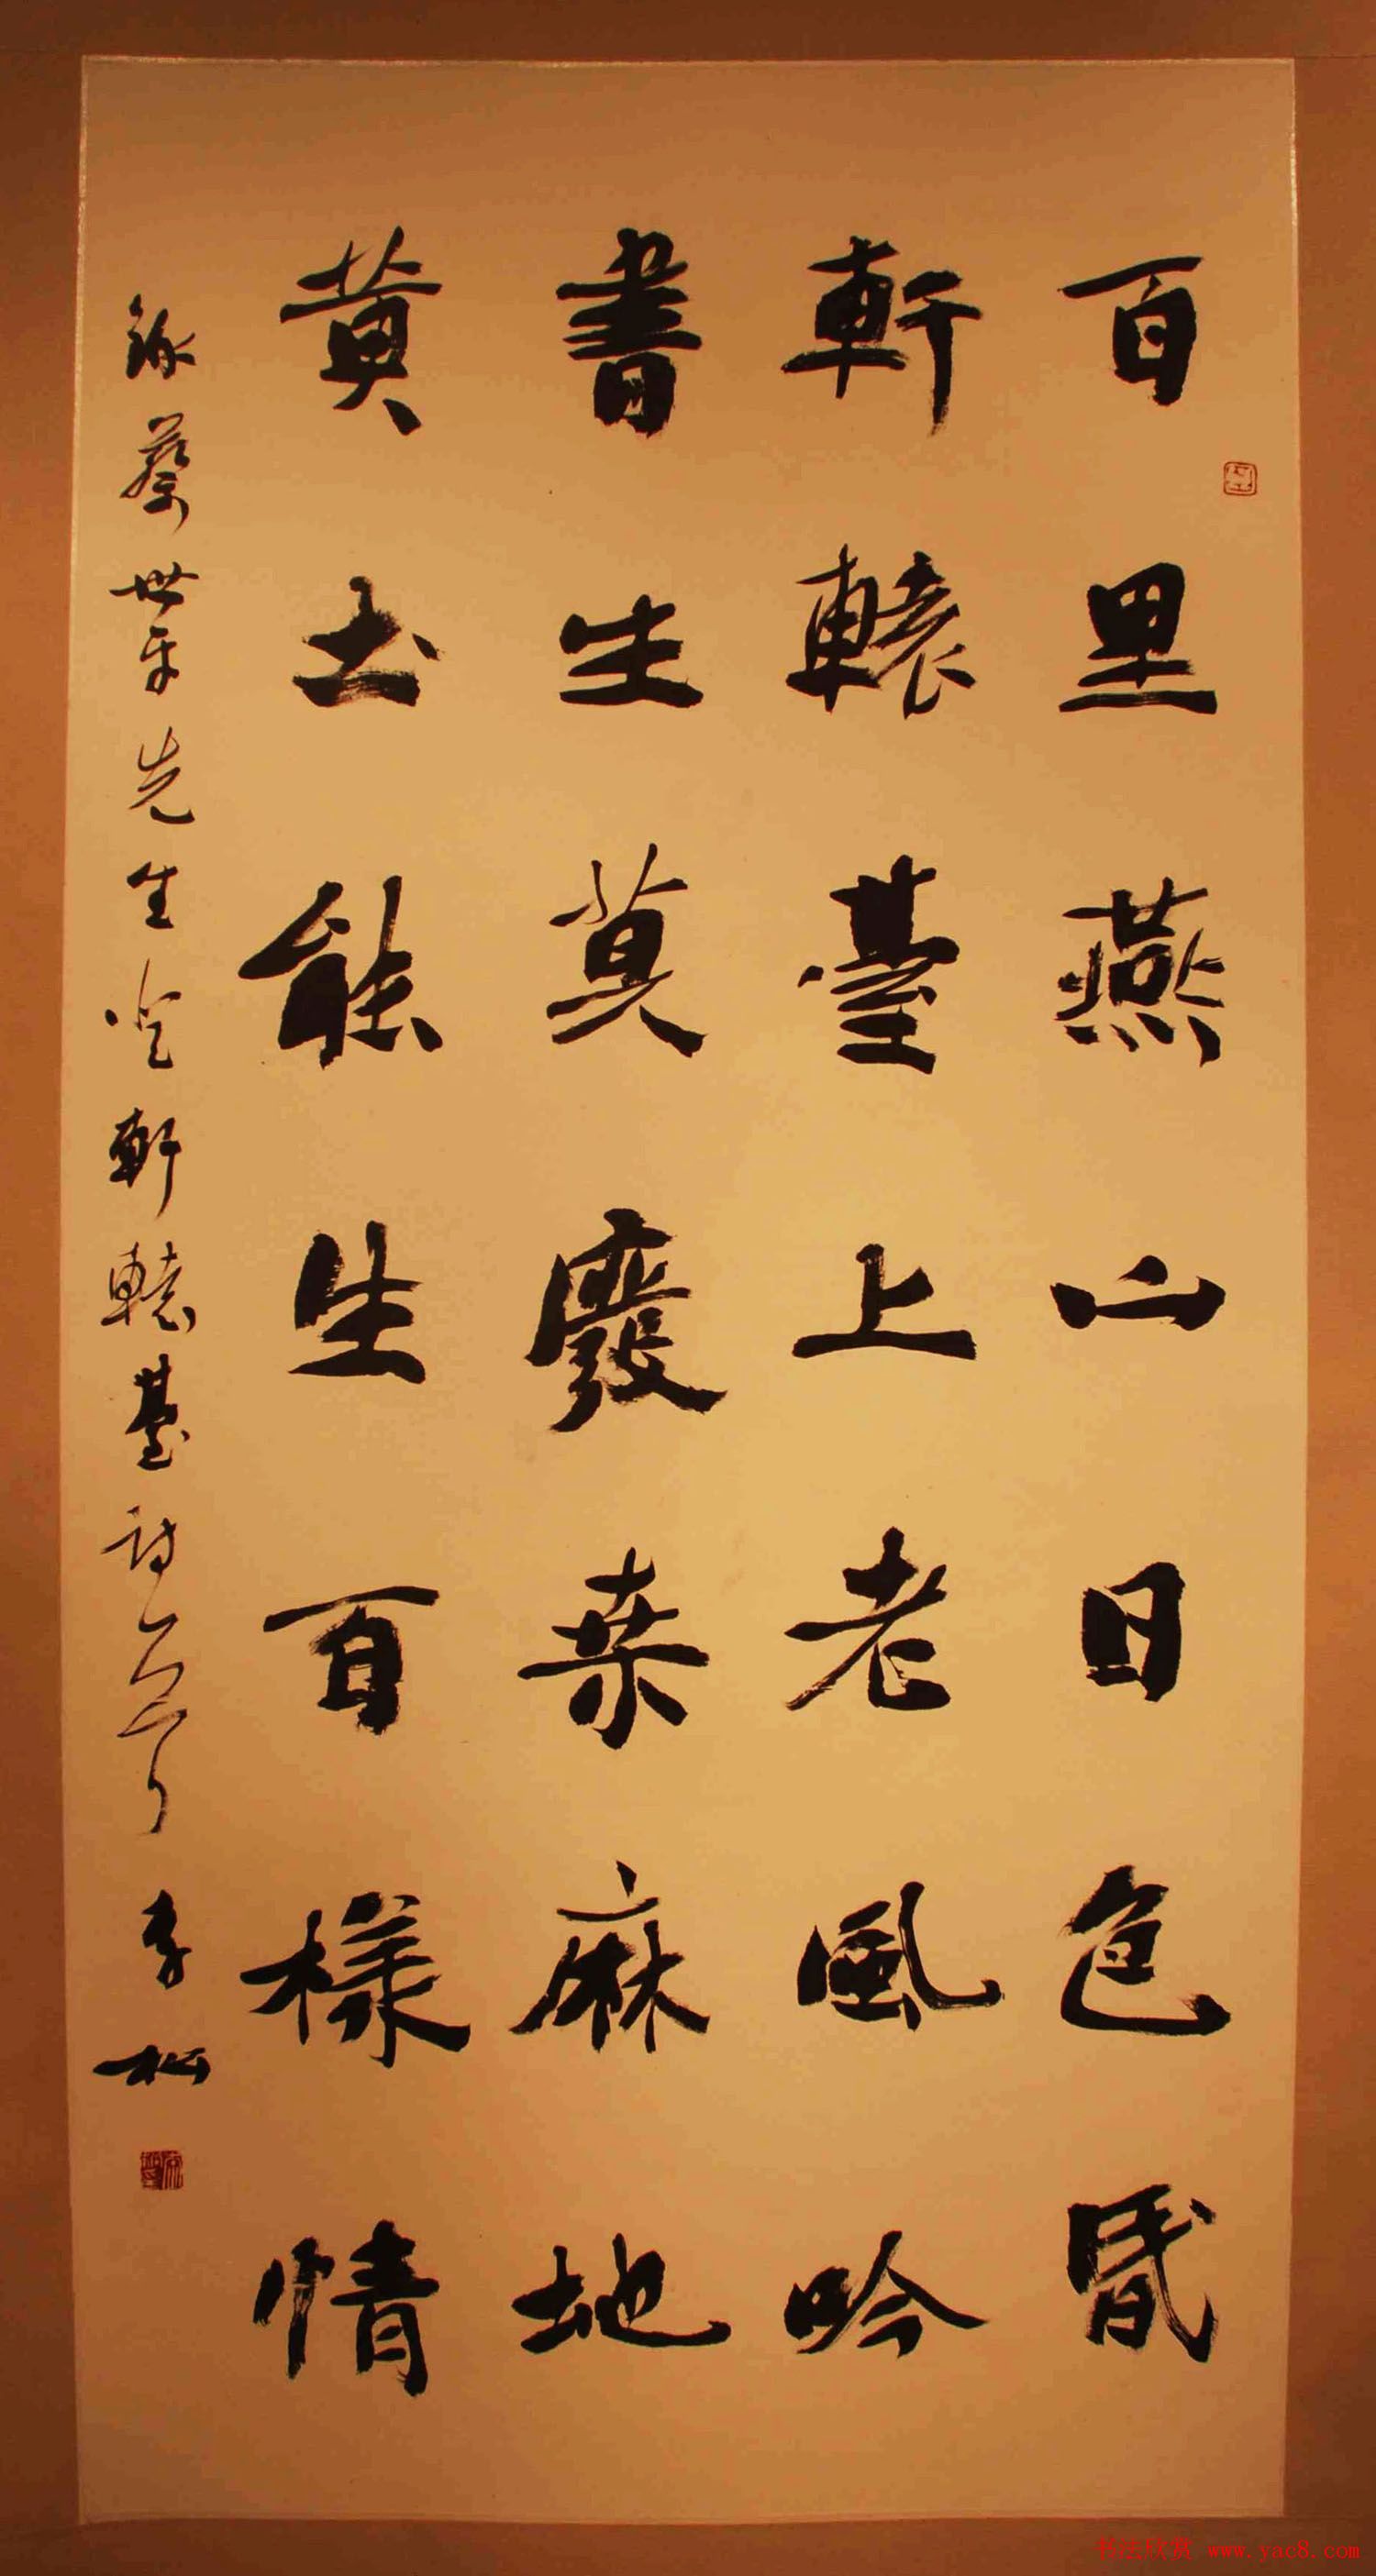 百里燕山日色昏
軒轅臺上老風吟
書生莫廢桑麻地
黄土能生百樣情
錄蔡世平先生登軒轅臺詩一首 李松
书法欣赏 www.yac8.com